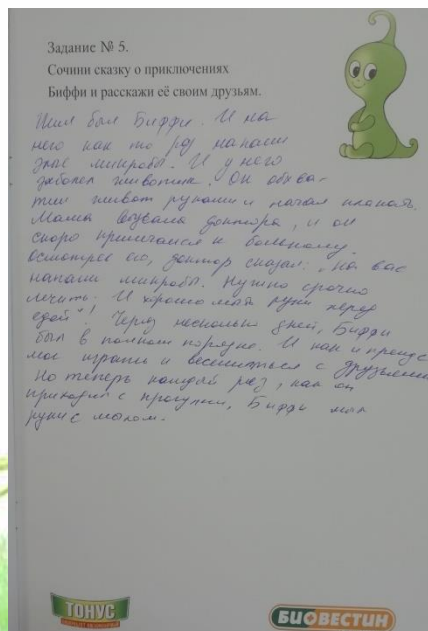 Задание № 5.
Сочини сказку о приключениях
Биффи и расскажи её своим друзьям.
Жил был Биффи. И на
него как то раз напали
злые микробы. И у него
заболел животик. Он обхва-
тил живот руками и начал плакать.
Мама вызвала доктора, и он
скоро примчался к больному.
Осмотрев его, доктор сказал: „На вас
напали микробы. Нужно срочно
лечить. И хорошо мой руки перед
едой"! Через несколько дней, Биффи
был в полном порядке. И как и прежде
мог играть и веселиться с друзьями
Но теперь каждый раз, как он
приходил с прогулки, Биффи мыл
руки с мылом.
ТОНУС
БИОВЕСТИН